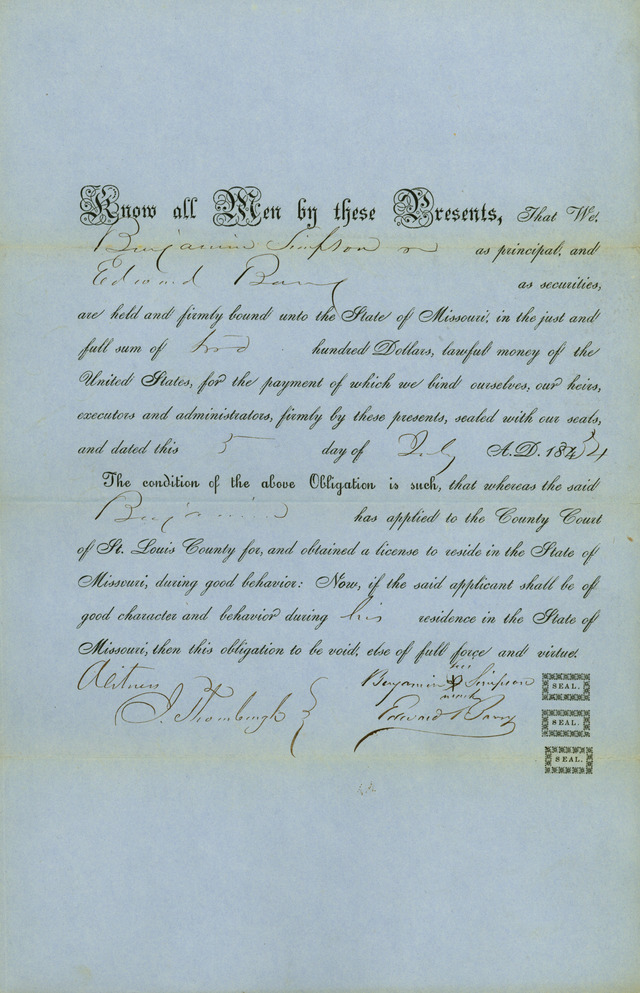 Know all Men by these Presents, That We,
Benjamin Simpson as principal, and
Edward Barry as securities,
are held and firmly bound unto the State of Missouri, in the just and
full sum of two hundred Dollars, lawful money of the
United States, for the payment of which we bind ourselves, our heirs,
executors and administrators, firmly by these presents, sealed with our seals,
and dated this 5 day of July A.D. 1854
The condition of the above Obligation is such, that whereas the said
Benjamin has applied to the County Court
of St. Louis County for, and obtained a license to reside in the State of
Missouri, during good behavior: Now, if the said applicant shall be of
good character and behavior during his residence in the State of
Missouri, then this obligation to be void, else of full force and virtue.
Witness
his
Benjamin X Simpson SEAL.
mark
J. Thornburgh
Edward Barry SEAL.
SEAL.